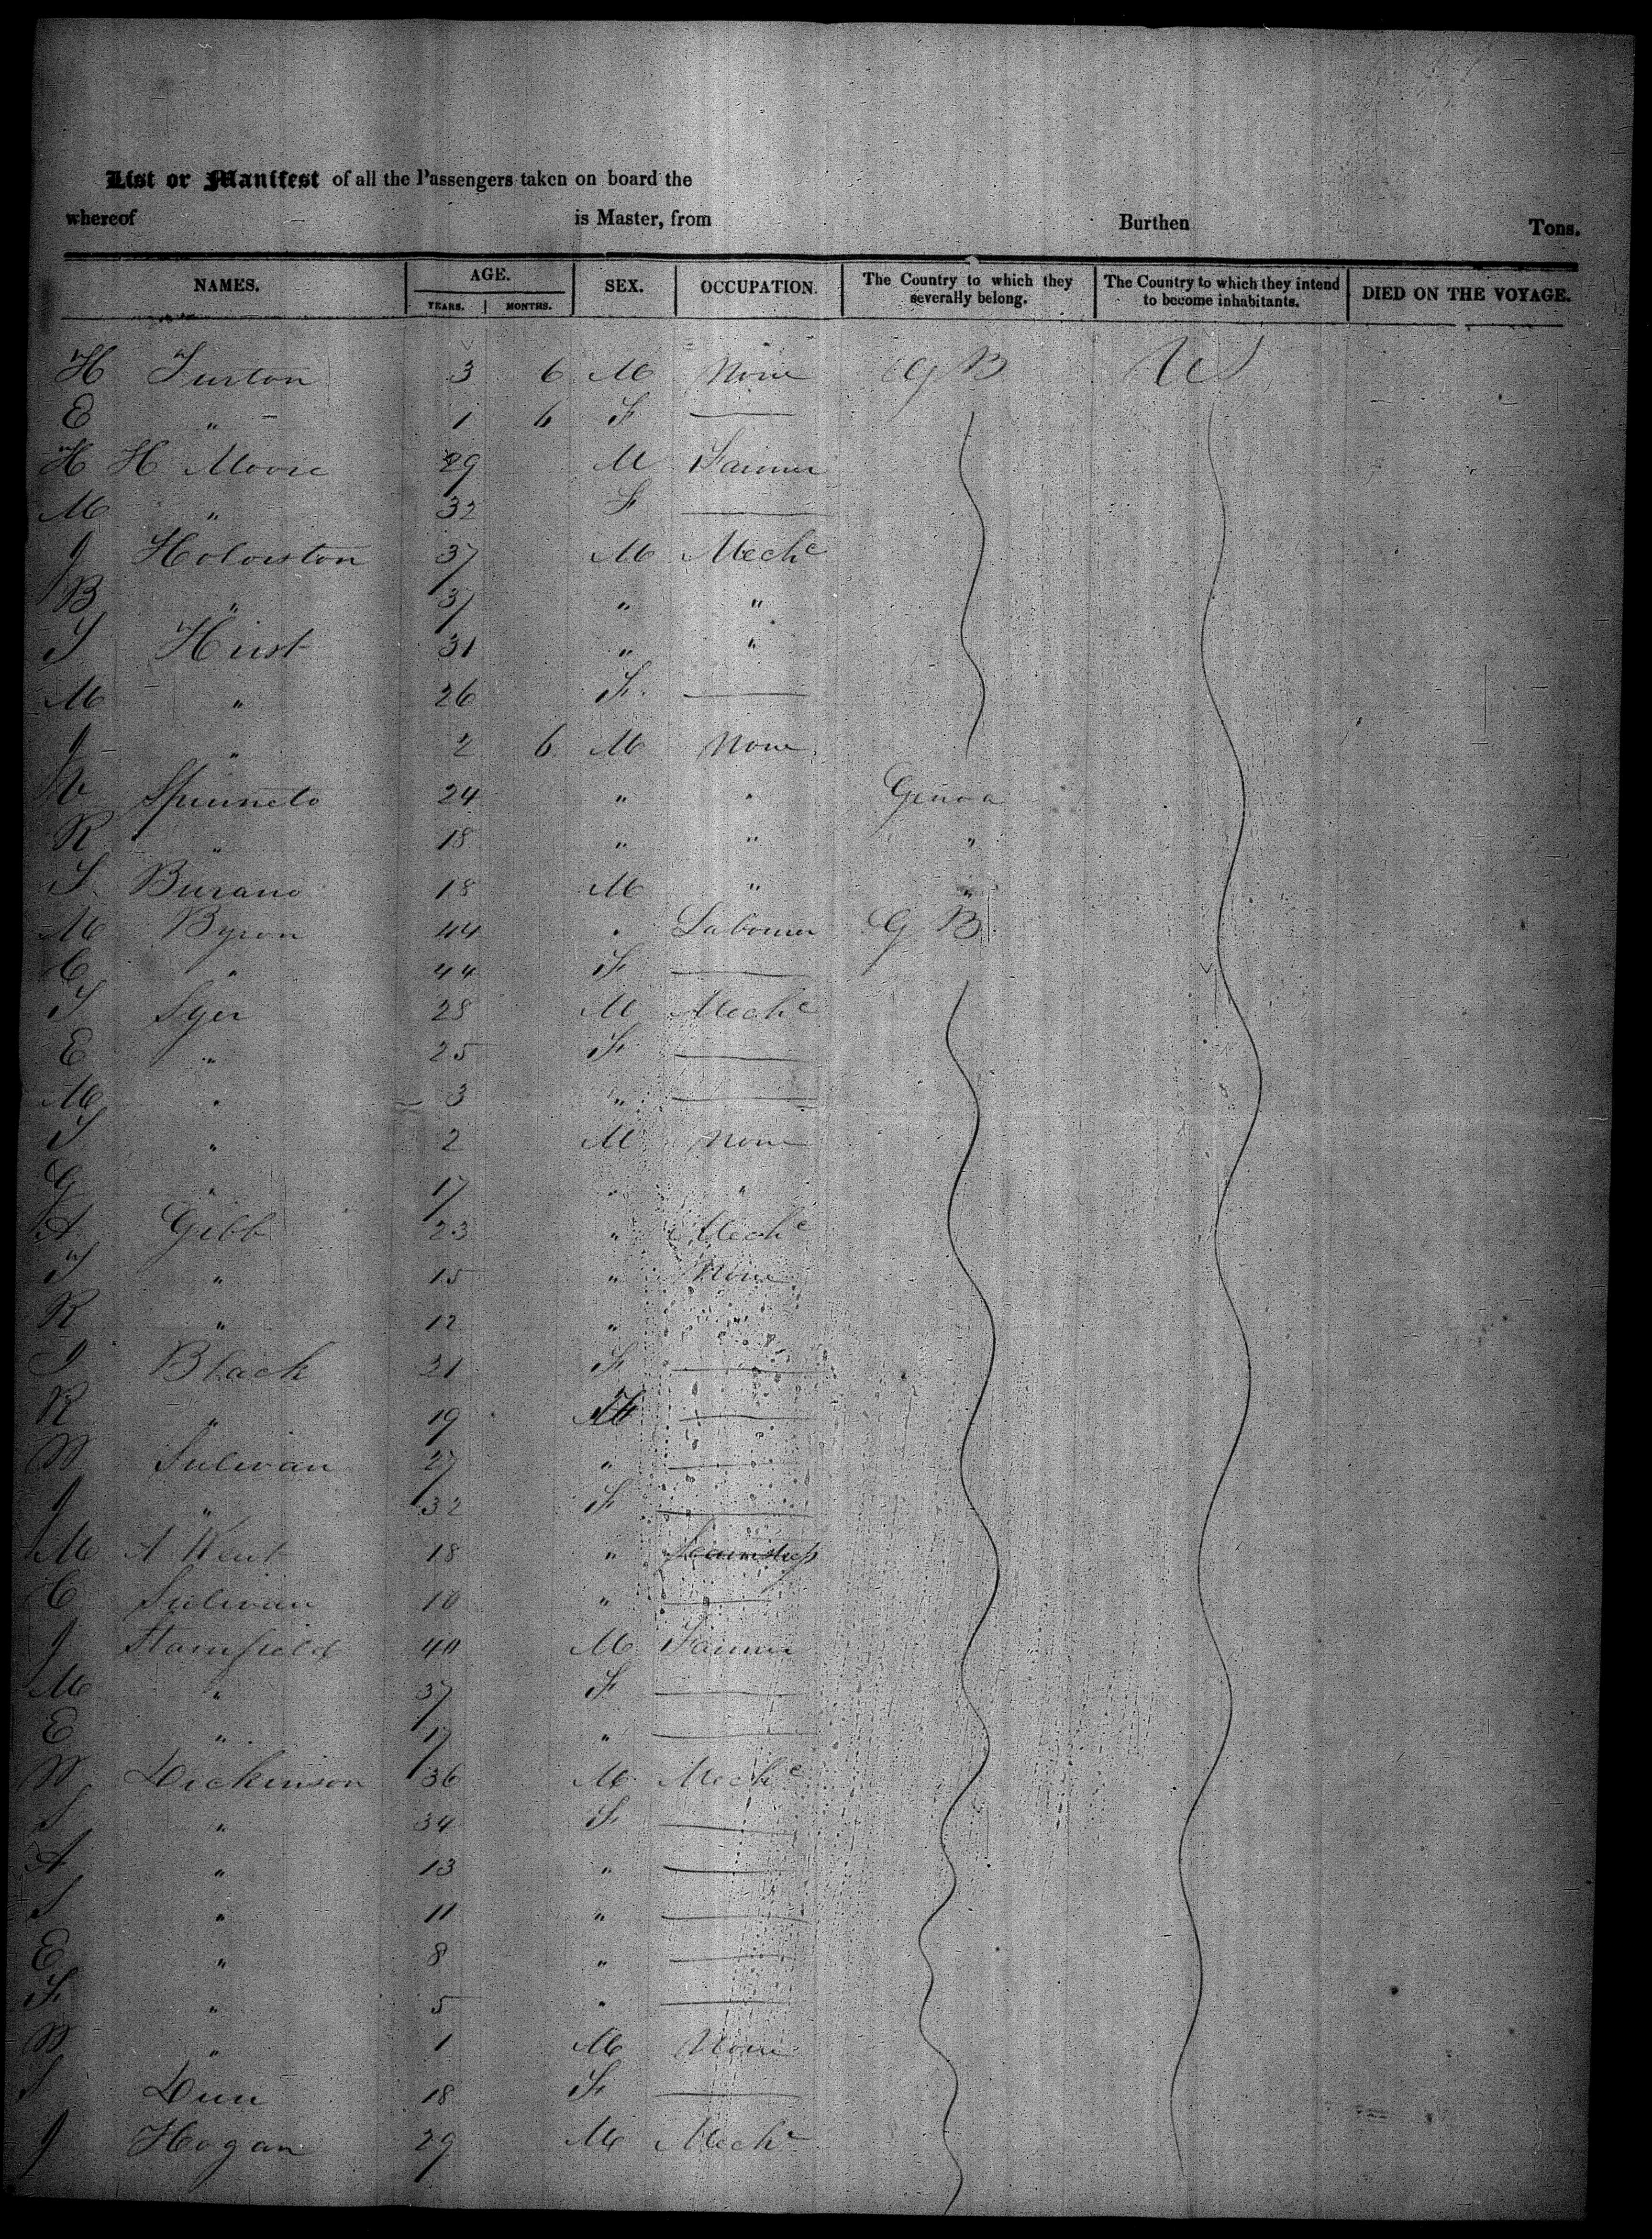 List or Manifest of all the Passengers taken on board the
whereof is Master, from Burthen Tons.
NAMES. AGE. SEX. OCCUPATION. The Country to which they severally belong. The Country to which they intend to become inhabitants. DIED ON THE VOYAGE.
YEARS. MONTHS.
H 3 6 M None G B US
E " 1 6 F
H H Moore 29 M Farmer
M " 32 F
J 37 M Mechc
B " 37 " "
S Hirst 31 " "
M " 26 F
J " 2 6 M None
24 " " Genoa
R " 18 " " "
S Burano 18 M " "
M Byron 44 " Labourer G B
C " 44 F
S Syer 28 M Mechc
E " 25 F
M " 3 "
S " 2 M None
G " 17 " "
A Gibb 23 " Mechc
T " 15 " None
R " 12 "
J Black 21 F
R " 19
W Sulivan 27 "
J " 32 F
M A Kent 18 " Seamstress
C Sulivan 10 "
J Stamfield 40 M Farmer
M " 37 F
E " 17 "
W Dickinson 36 M Mechc
S " 34 F
A " 13 "
S " 11 "
E " 8 "
F " 5 "
W " 1 M None
S Dun 18 F
J Hogan 29 M Mechc